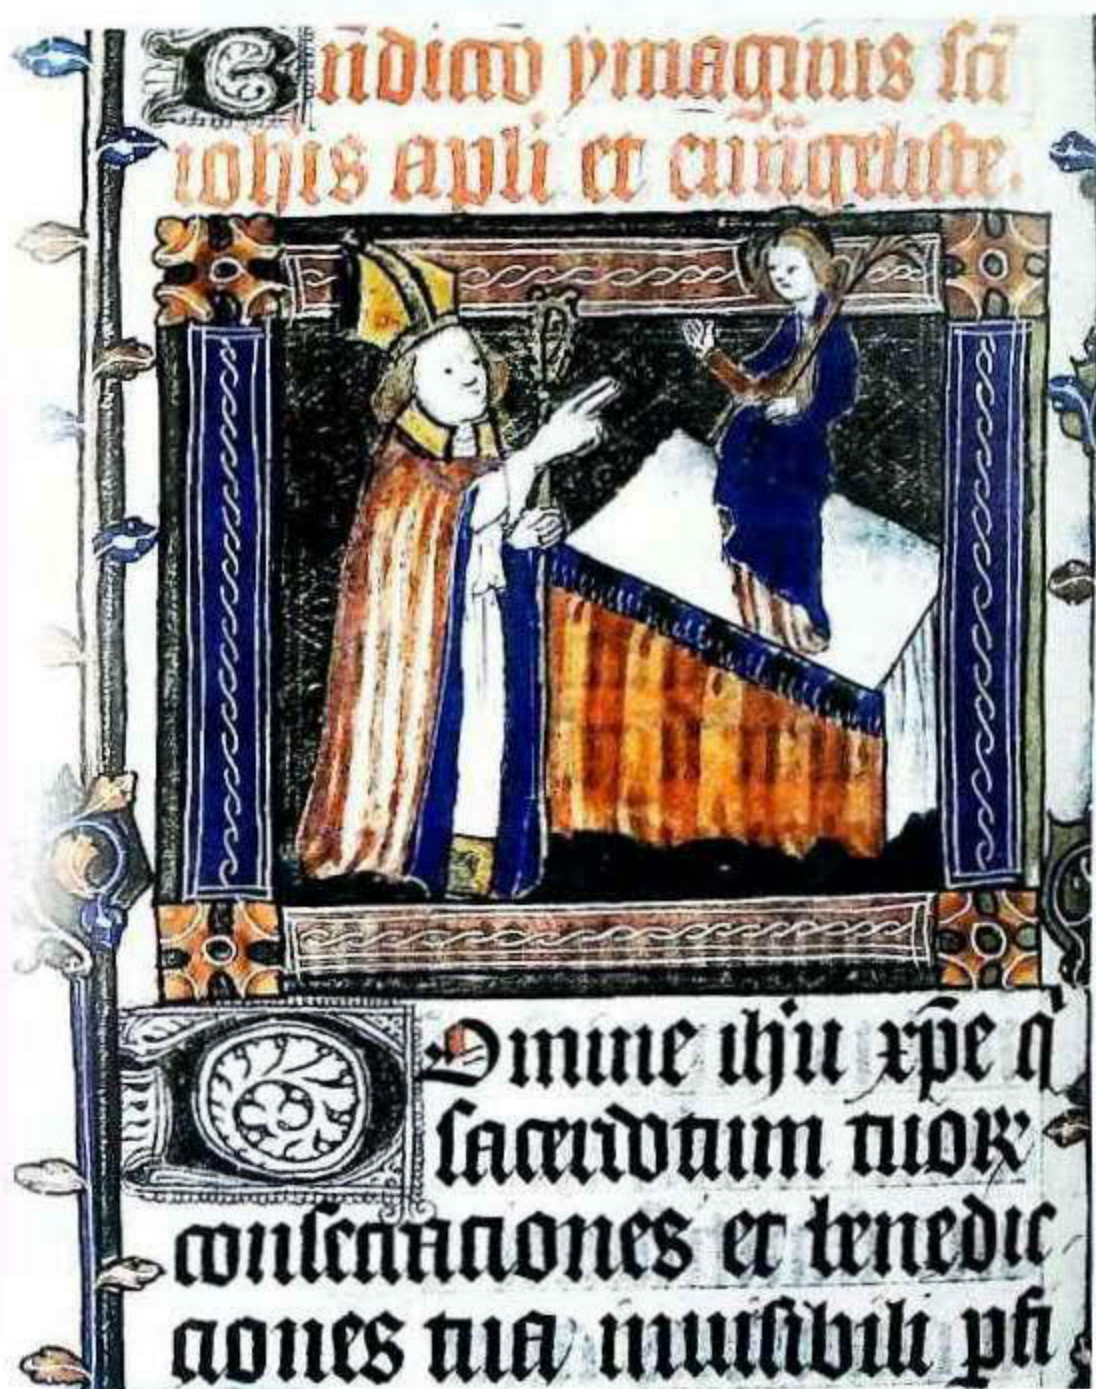 Bñdictio ymaginis sc̄i
ioh̄is apl̄i et euāgeliste.
Domine ih̄u xp̄e q̄
sacerdotum tuoꝝ
consecraciones et benedic
ciones tua inuisibili pfi